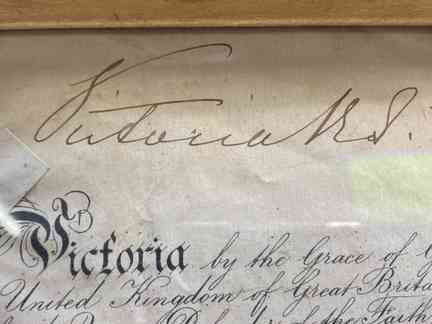 Victoria R I.
Victoria by the Grace of G
United Kingdom of Great Brita
of the Faith